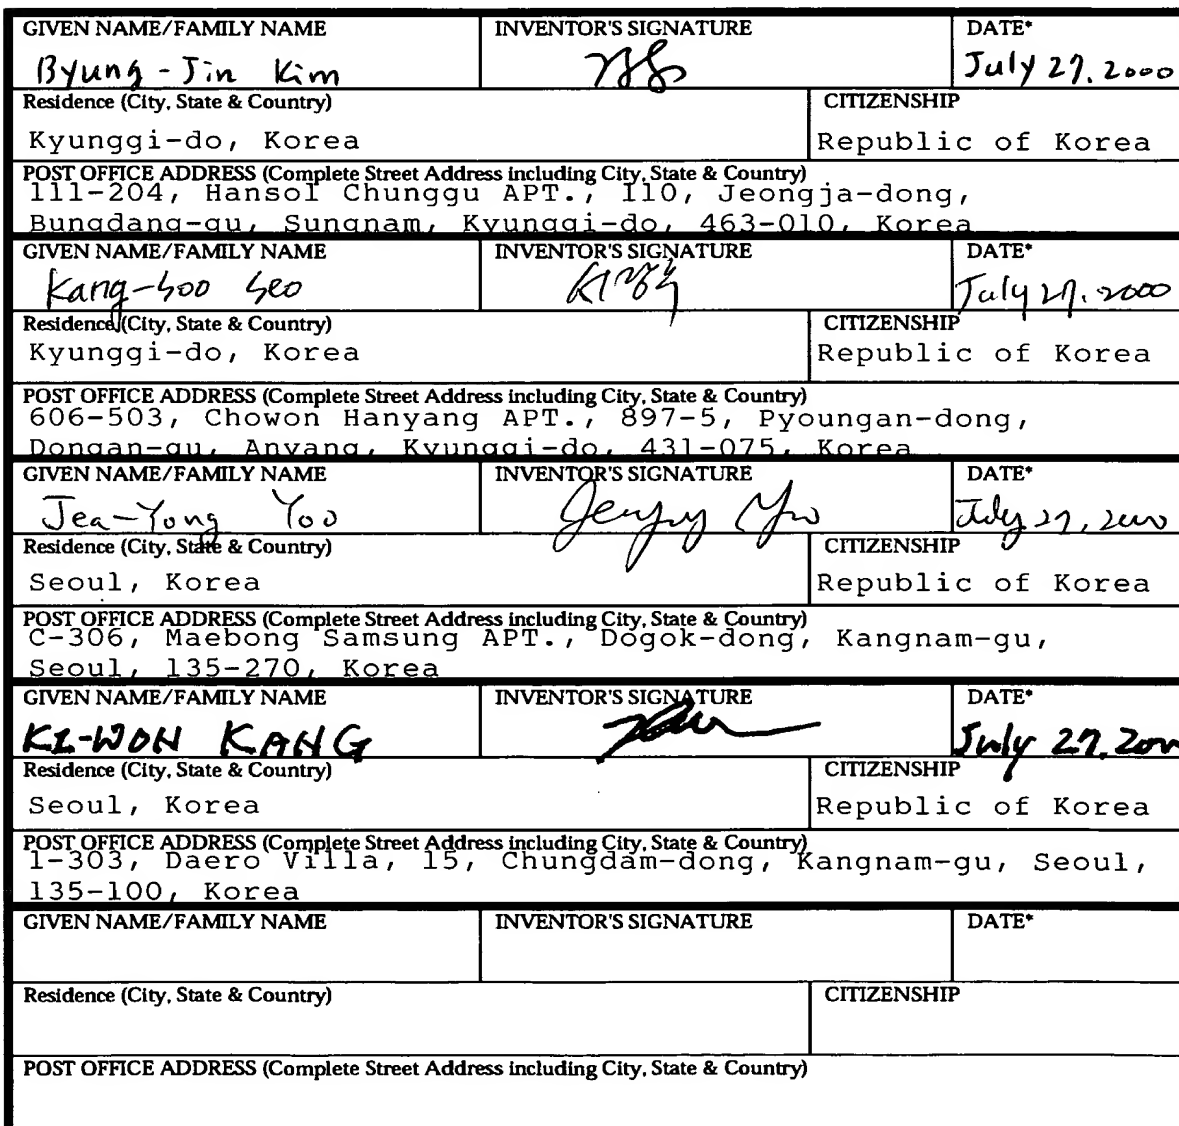 GIVEN NAME/FAMILY NAME INVENTOR'S SIGNATURE DATE*
Byung-Jin Kim July 27. 2000
Residence (City, State & Country) CITIZENSHIP
Kyunggi-do, Korea Republic of Korea
POST OFFICE ADDRESS (Complete Street Address including City, State & Country)
111-204, Hansol Chunggu APT., 110, Jeongja-dong,
Bungdang-gu, Sungnam, Kyunggi-do, 463-010, Korea
GIVEN NAME/FAMILY NAME INVENTOR'S SIGNATURE DATE*
Kang-Soo Seo 서강수 July 27. 2000
Residence (City, State & Country) CITIZENSHIP
Kyunggi-do, Korea Republic of Korea
POST OFFICE ADDRESS (Complete Street Address including City, State & Country)
606-503, Chowon Hanyang APT., 897-5, Pyoungan-dong,
Dongan-gu, Anyang, Kyunggi-do, 431-075, Korea
GIVEN NAME/FAMILY NAME INVENTOR'S SIGNATURE DATE*
Jea-Yong Yoo July 27, 2000
Residence (City, State & Country) CITIZENSHIP
Seoul, Korea Republic of Korea
POST OFFICE ADDRESS (Complete Street Address including City, State & Country)
C-306, Maebong Samsung APT., Dogok-dong, Kangnam-gu,
Seoul, 135-270, Korea
GIVEN NAME/FAMILY NAME INVENTOR'S SIGNATURE DATE*
KI-WON KANG July 27. 2000
Residence (City, State & Country) CITIZENSHIP
Seoul, Korea Republic of Korea
POST OFFICE ADDRESS (Complete Street Address including City, State & Country)
1-303, Daero Villa, 15, Chungdam-dong, Kangnam-gu, Seoul,
135-100, Korea
GIVEN NAME/FAMILY NAME INVENTOR'S SIGNATURE DATE*
Residence (City, State & Country) CITIZENSHIP
POST OFFICE ADDRESS (Complete Street Address including City, State & Country)